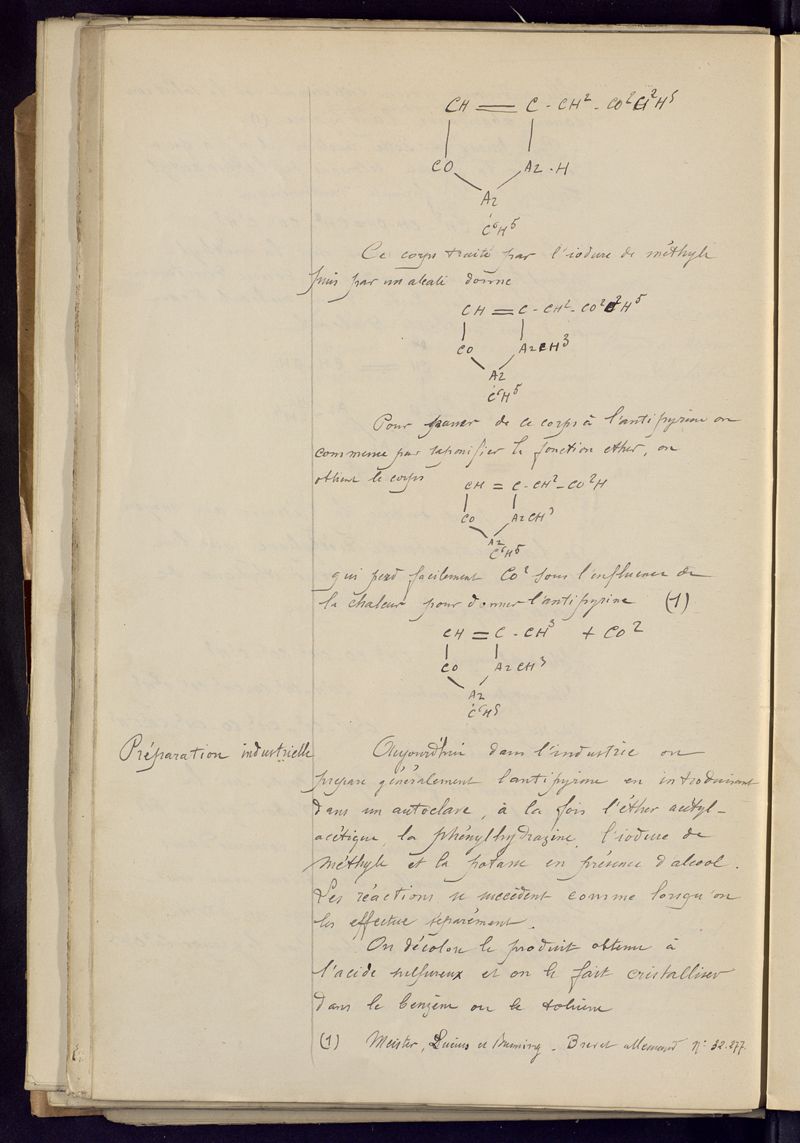 CH = C - CH² - CO²C²H⁵
CO Az - H
Az
C⁶H⁵
Ce corps traité par l'iodure de méthyle
puis par un alcali donne
CH = C - CH² - CO²C²H⁵
CO AzCH³
Az
C⁶H⁵
Pour passer de ce corps à l'antipyrine on
commence par saponifier la fonction ether, on
obtient le corps
CH = C - CH² - CO²H
CO AzCH³
Az
C⁶H⁵
qui perd facilement CO² sous l'influence de
la chaleur pour donner l'antipyrine (1)
CH = C - CH³ + CO²
CO AzCH³
Az
C⁶H⁵
Préparation industrielle
Aujourd'hui dans l'industrie on
prepare généralement l'antipyrine en introduisant
dans un autoclave, à la fois l'éther acétyl-
acétique, la phénylhydrazine, l'iodure de
méthyle et la potasse en présence d'alcool.
Les réactions se succèdent comme lorsqu'on
les effectue séparément.
On décolore le produit obtenu à
l'acide sulfureux et on le fait cristalliser
dans le benzène ou le toluène
(1) Meister, Lucius et Bruning. Brevet allemand N° 32.277.